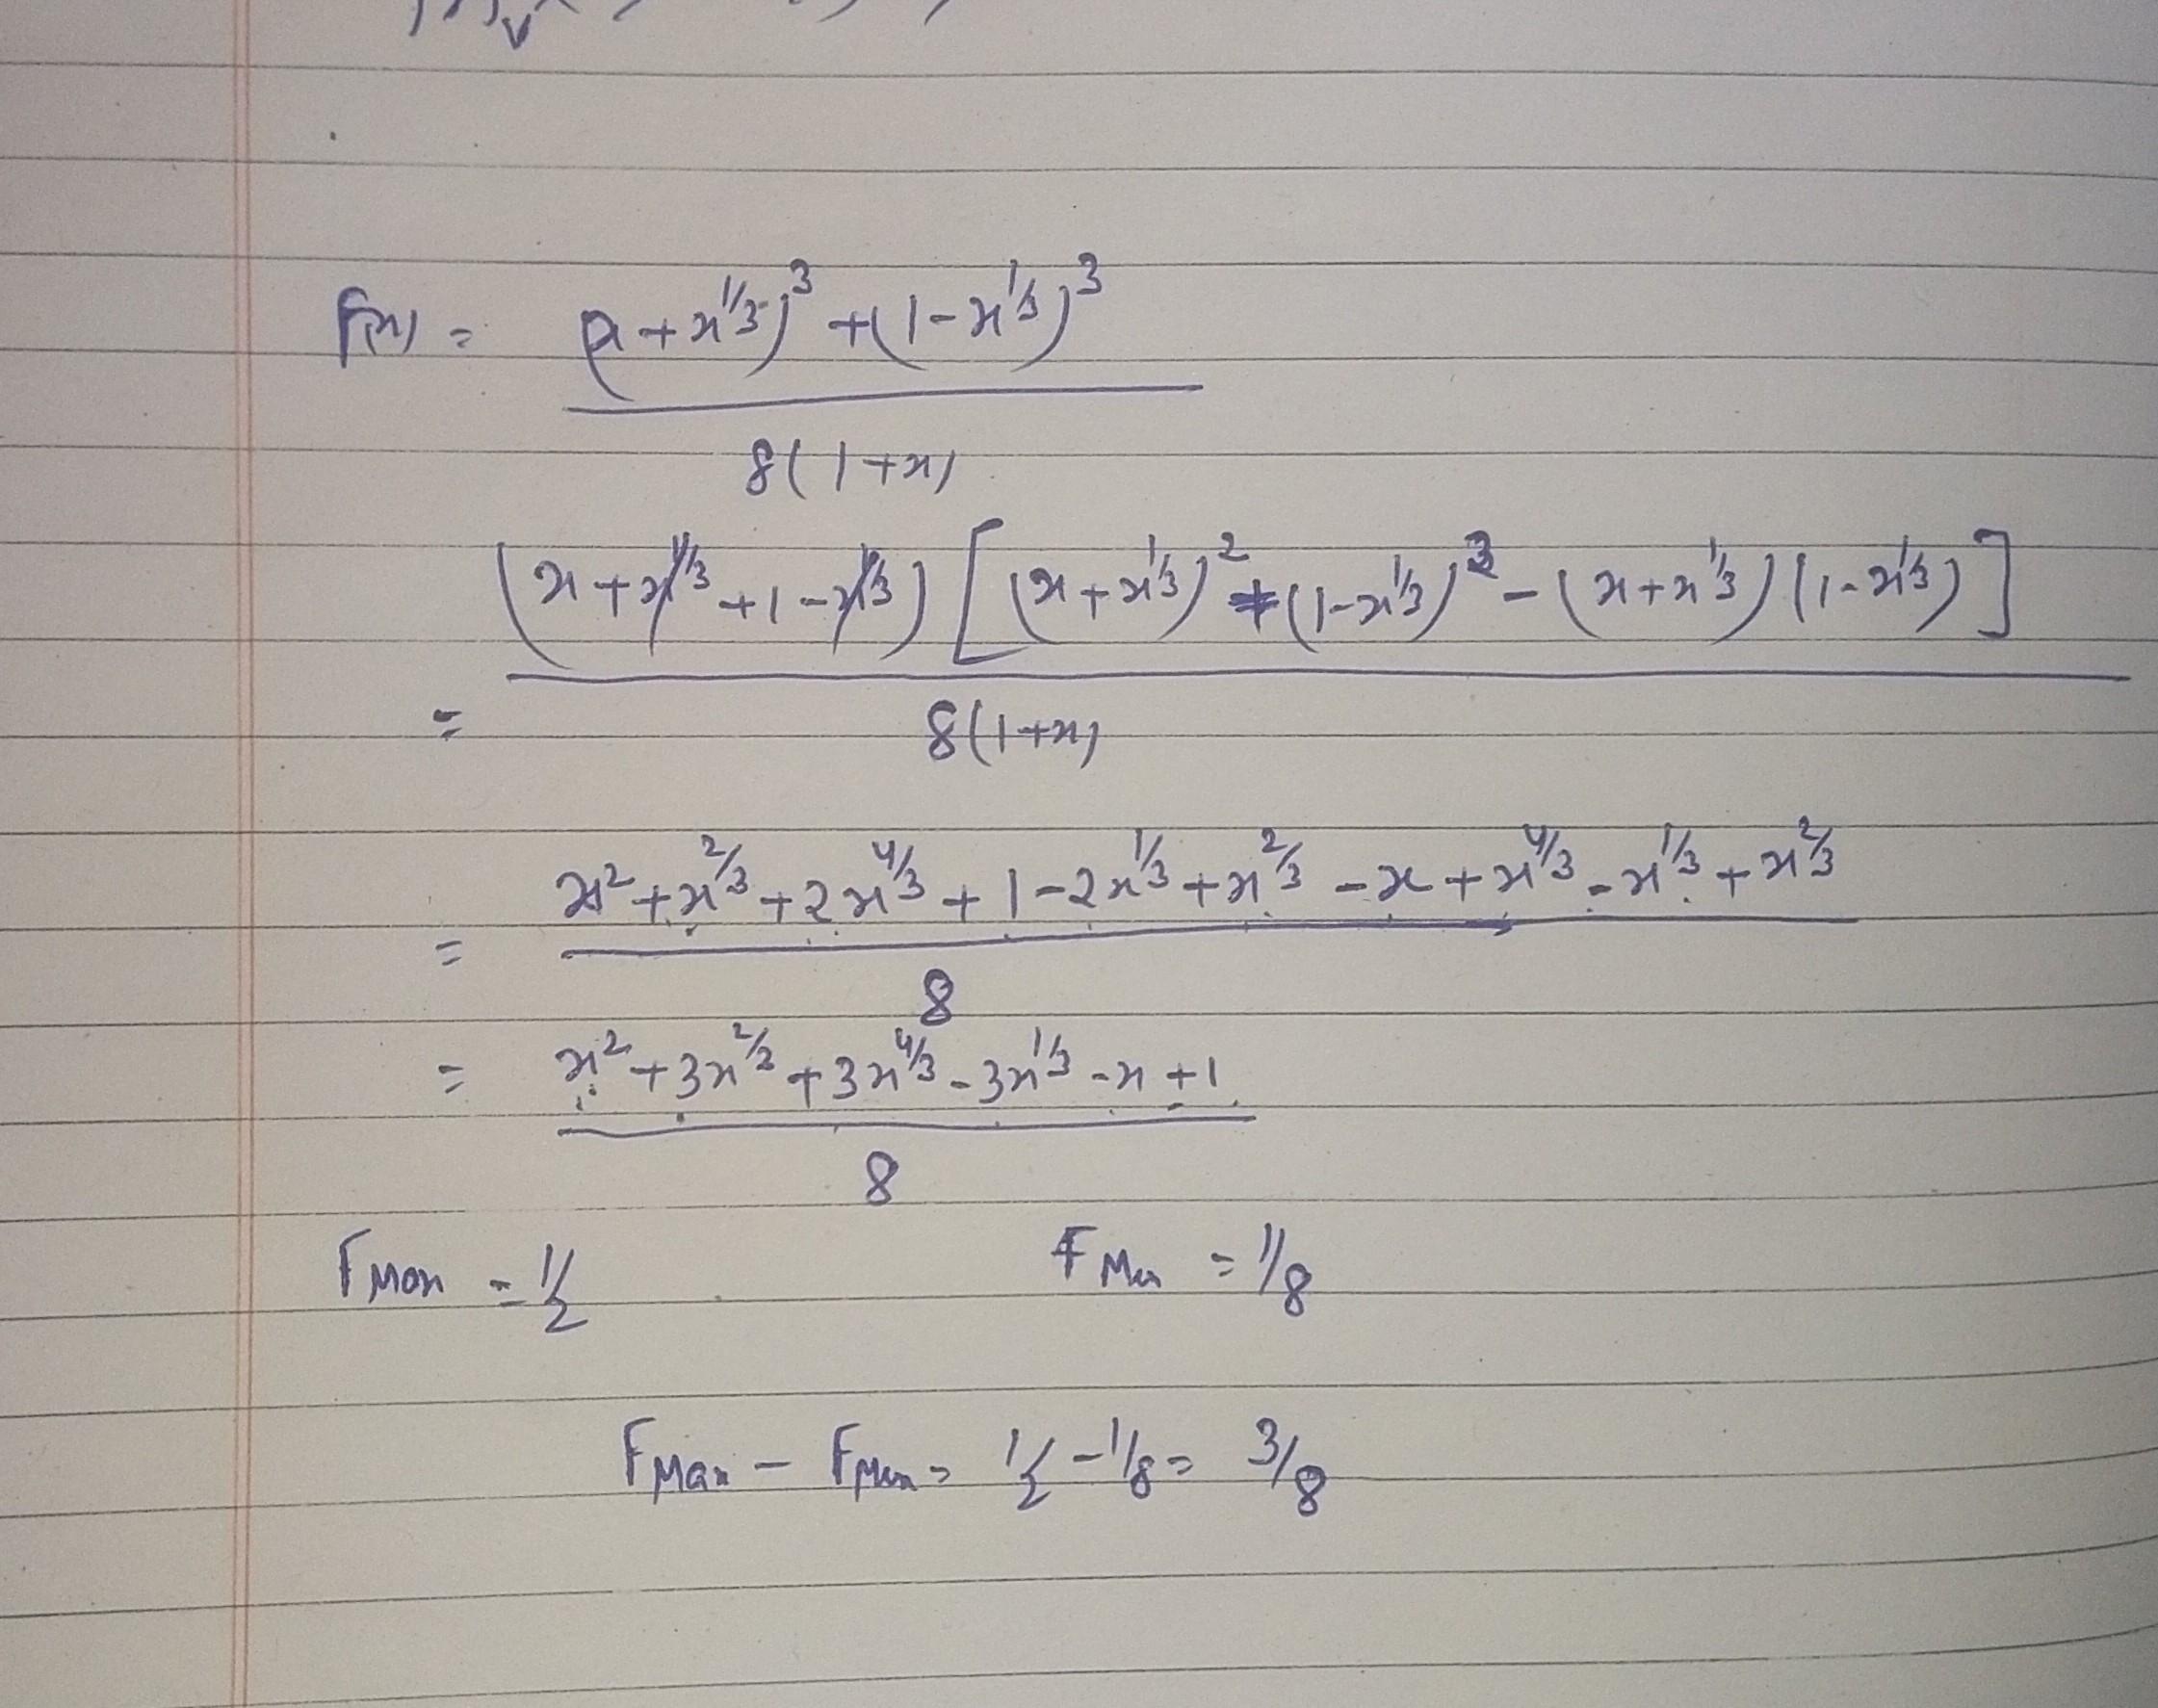 F(x) = (x + x^1/3)^3 + (1 - x^1/3)^3
8(1+x)
(x + x^1/3 + 1 - x^1/3) [(x + x^1/3)^2 + (1 - x^1/3)^2 - (x + x^1/3)(1 - x^1/3)]
= 8(1+x)
x^2 + x^2/3 + 2x^4/3 + 1 - 2x^1/3 + x^2/3 - x + x^4/3 - x^1/3 + x^2/3
=
8
= x^2 + 3x^2/3 + 3x^4/3 - 3x^1/3 - x + 1
8
FMax = 1/2 FMin = 1/8
FMax - FMin = 1/2 - 1/8 = 3/8